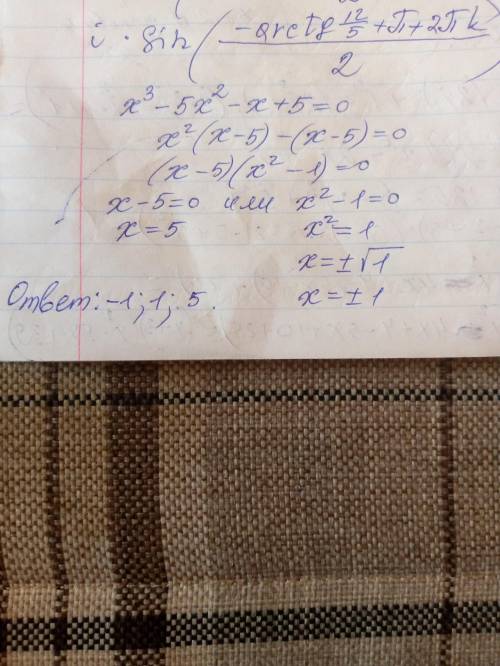 i · sin( (-arctg 12/5 + π + 2πk) / 2 )
x³ - 5x² - x + 5 = 0
x²(x-5) - (x-5) = 0
(x-5)(x² - 1) = 0
x-5=0 или x²-1=0
x = 5 x² = 1
x = ±√1
Ответ: -1; 1; 5. x = ±1